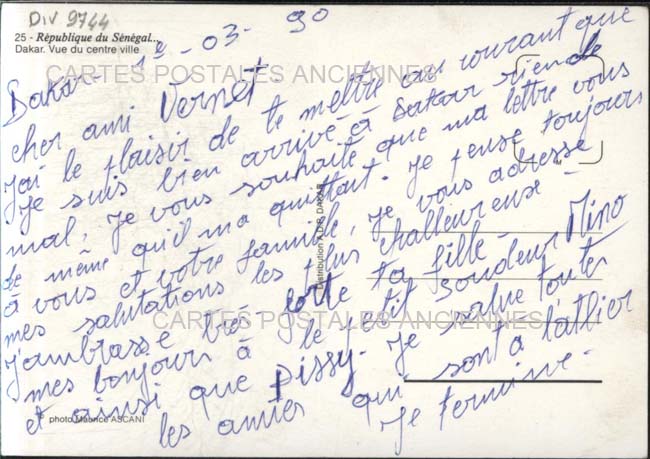 DIV 9744
25 - République du Sénégal...
Dakar. Vue du centre ville
Dakar - 1e - 03 - 90
cher ami Vernet
J'ai le plaisir de te mettre au courant que
Je suis bien arrivé à Dakar rien de
mal, Je vous souhaite que ma lettre vous
de même qu'il ma quittant. Je pense toujours
à vous et votre famille, Je vous adresse
mes salutations les plus challeureuse -
J'ambrasse très ta fille - Mino
mes bonjour à le petit soudeur
et ainsi que pissy. Je salue touter
les amier qui sont à l'atlier
Je termine -
Distribution A.D.P. DAKAR
© photo Maurice ASCANI
CARTES POSTALES ANCIENNES
CARTES POSTALES ANCIENNES